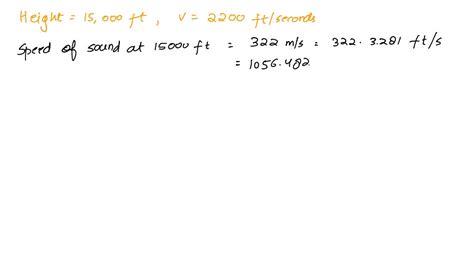 Height = 15,000 ft , V = 2200 ft/seconds
Speed of sound at 15000 ft = 322 m/s = 322 · 3.281 ft/s
= 1056.482